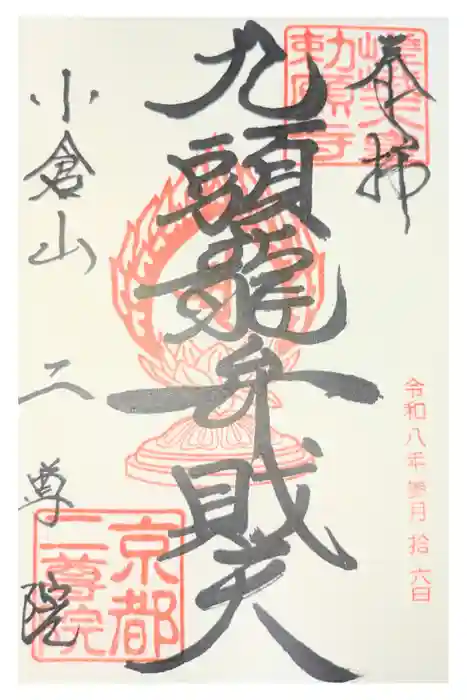 奉拝
嵯峨天皇
勅願寺
令和八年参月拾六日
九頭龍弁財天
小倉山 二尊院
京都
二尊院